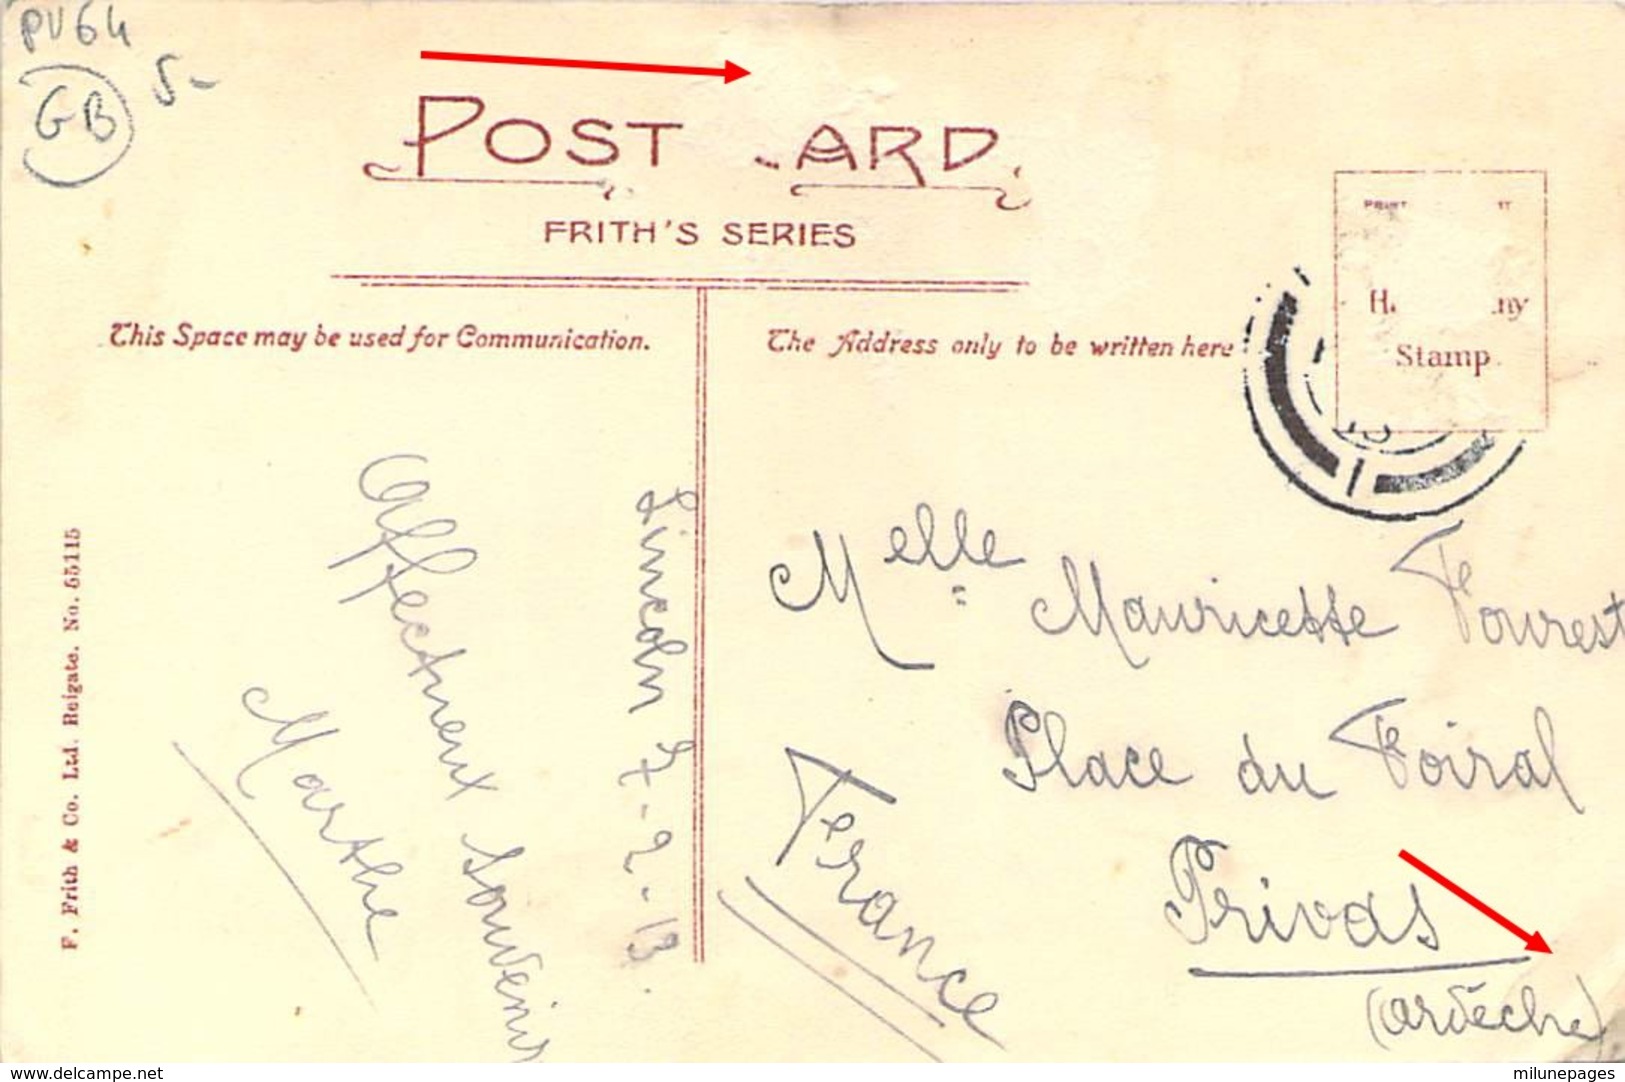 PV64
GB 5-
POST ARD.
FRITH'S SERIES
This Space may be used for Communication.
The Address only to be written here
Stamp
F. Frith & Co. Ltd. Reigate. No. 55115
Lincoln 7-2-13.
Affectueux souvenir
Marthe
Melle Mauricette Fourest
Place du Foiral
Privas
(Ardèche)
France
www.delcampe.net
milunepages